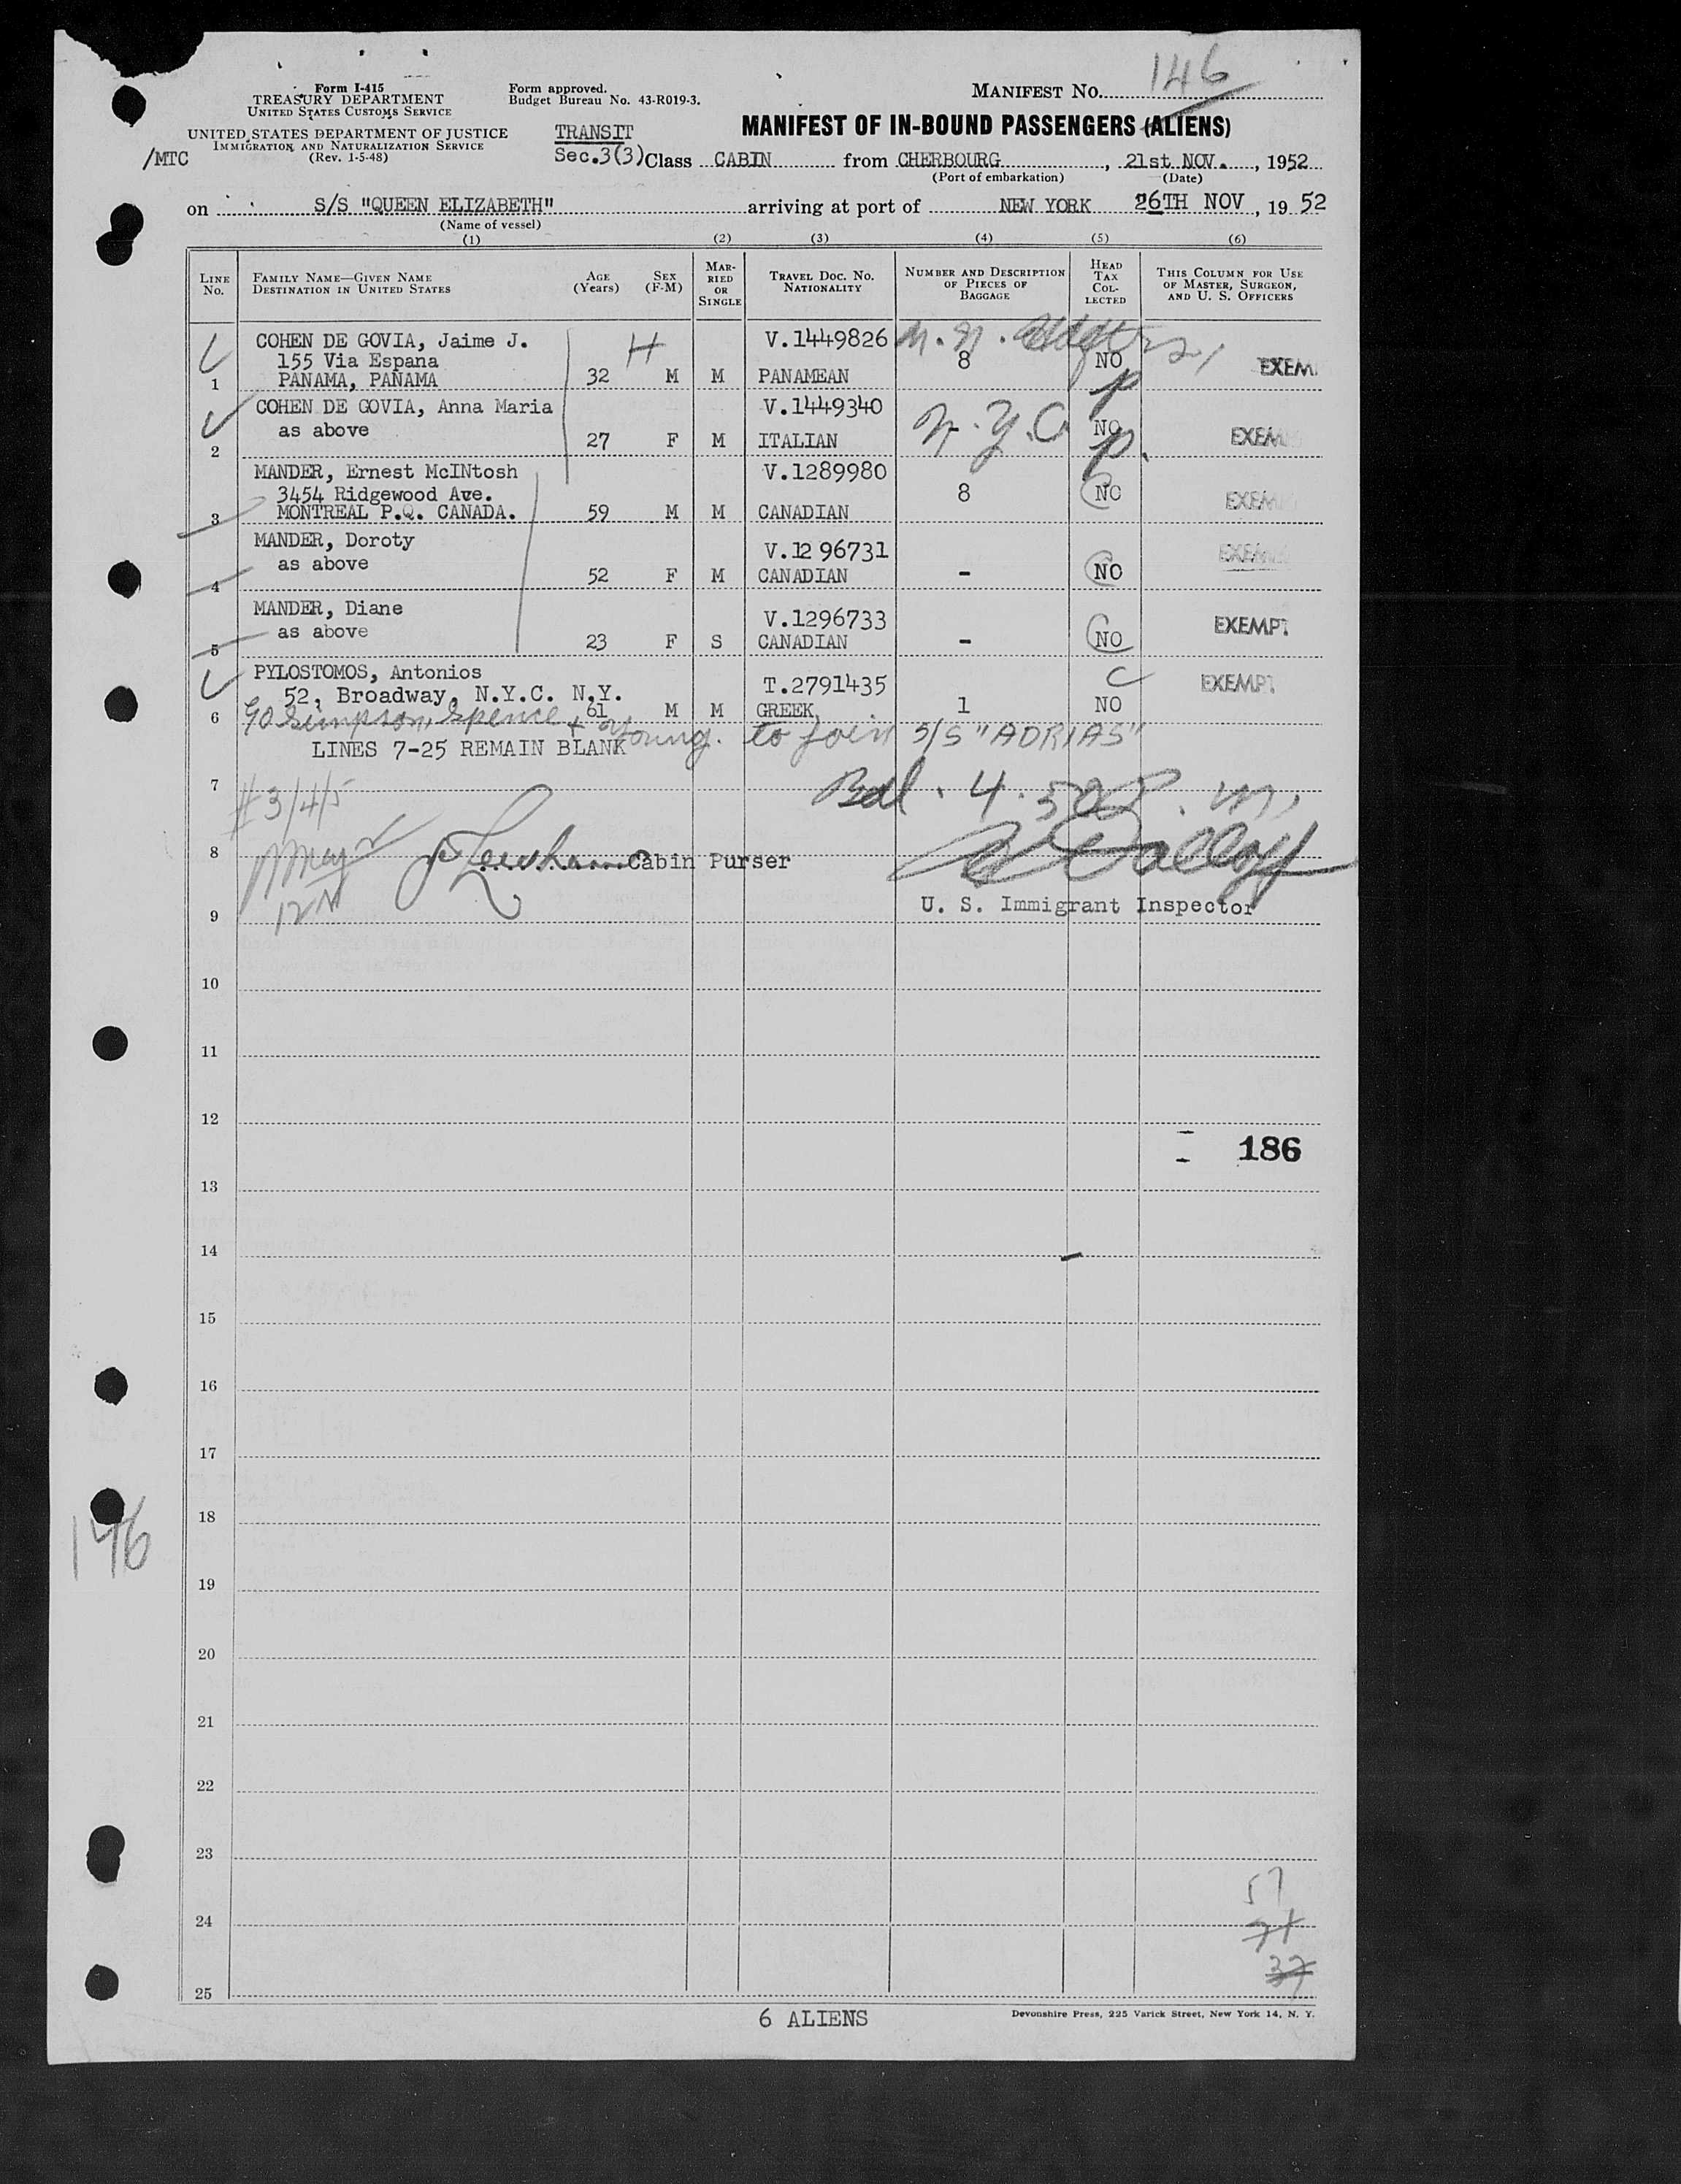 146
Form I-415
TREASURY DEPARTMENT
UNITED STATES CUSTOMS SERVICE
UNITED STATES DEPARTMENT OF JUSTICE
IMMIGRATION AND NATURALIZATION SERVICE
(Rev. 1-5-48)
/MTC
Form approved.
Budget Bureau No. 43-R019-3.
MANIFEST No.
MANIFEST OF IN-BOUND PASSENGERS (ALIENS)
TRANSIT
Sec.3(3) Class CABIN from CHERBOURG, 21st NOV., 1952
(Port of embarkation) (Date)
on S/S "QUEEN ELIZABETH" arriving at port of NEW YORK 26TH NOV, 19 52
(Name of vessel)
(1) (2) (3) (4) (5) (6)
LINE No.
FAMILY NAME—GIVEN NAME
DESTINATION IN UNITED STATES
AGE (Years)
SEX (F-M)
MARRIED OR SINGLE
TRAVEL DOC. NO. NATIONALITY
NUMBER AND DESCRIPTION OF PIECES OF BAGGAGE
HEAD TAX COLLECTED
THIS COLUMN FOR USE OF MASTER, SURGEON, AND U. S. OFFICERS
COHEN DE GOVIA, Jaime J. H V.1449826
155 Via Espana 8 NO EXEM
1 PANAMA, PANAMA 32 M M PANAMEAN p
COHEN DE GOVIA, Anna Maria V.1449340
as above N.Y.C NO EXEM
2 27 F M ITALIAN p.
MANDER, Ernest McINtosh V.1289980
3454 Ridgewood Ave. 8 NO EXEM
3 MONTREAL P.Q. CANADA. 59 M M CANADIAN
MANDER, Doroty V.12 96731 EXEM
as above
4 52 F M CANADIAN - NO
MANDER, Diane V.1296733 EXEMPT
as above
5 23 F S CANADIAN - NO
PYLOSTOMOS, Antonios T.2791435 C EXEMPT
52, Broadway, N.Y.C. N.Y.
6 61 M M GREEK 1 NO
Simpson, Spence + Young. to join S/S "ADRIAS"
LINES 7-25 REMAIN BLANK
7
#3/4/5
8 Cabin Purser
U. S. Immigrant Inspector
9
10
11
12
186
13
14
15
16
17
18
146
19
20
21
22
23
57
24
37
25
6 ALIENS
Devonshire Press, 225 Varick Street, New York 14, N. Y.